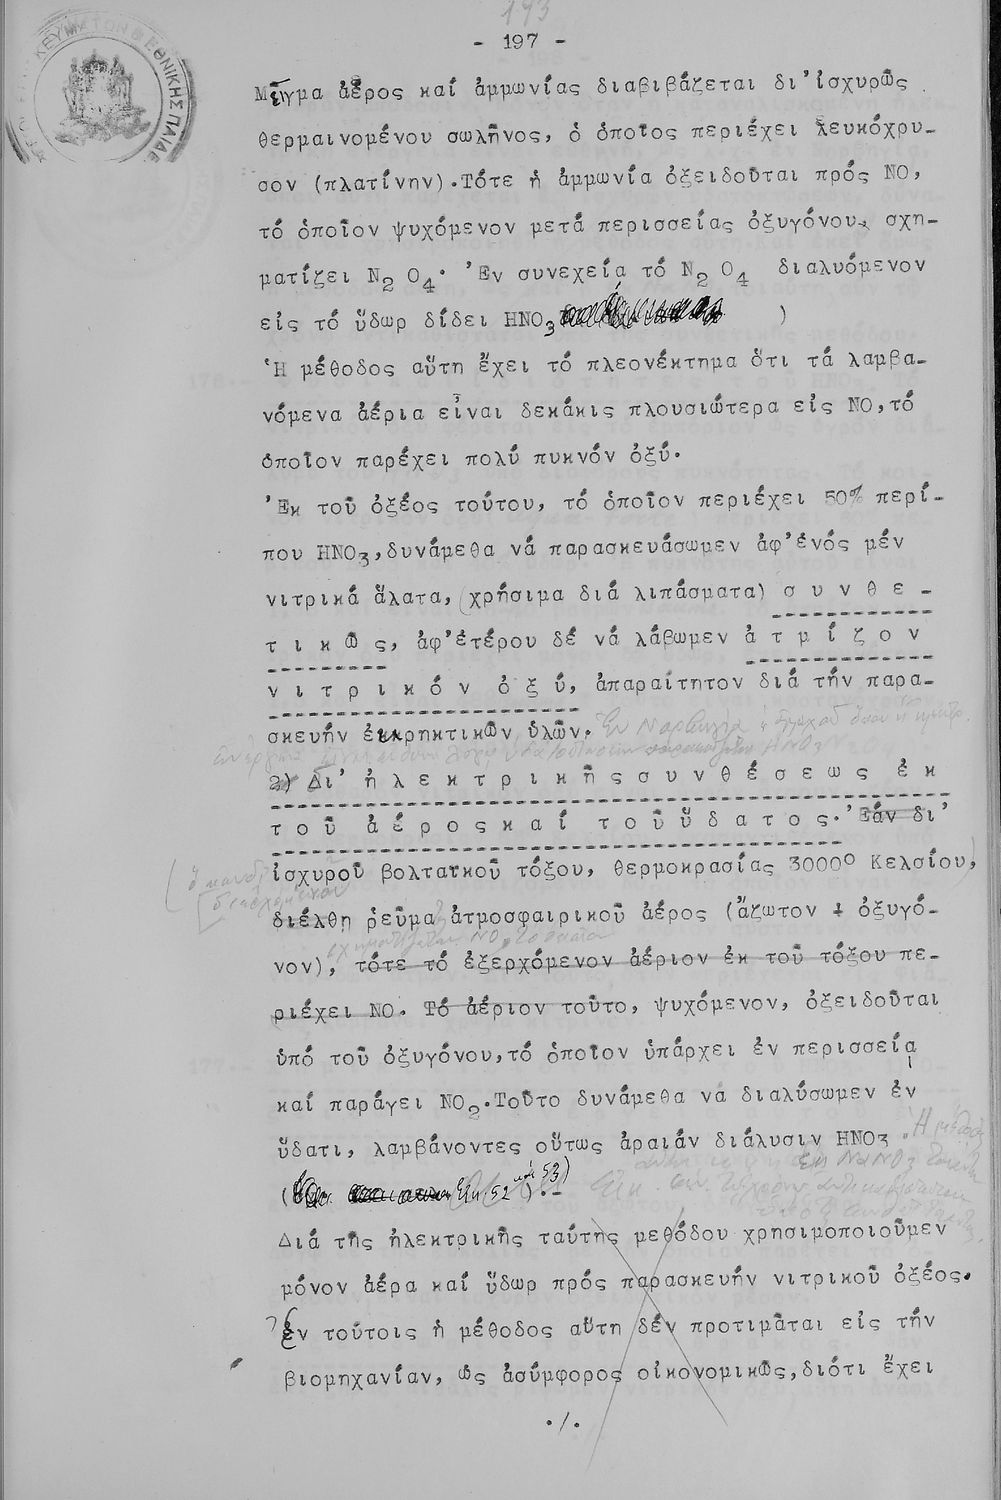 193
- 197 -
Μῖγμα ἀέρος καί ἀμμωνίας διαβιβάζεται δι'ἰσχυρῶς
θερμαινομένου σωλῆνος, ὁ ὁποῖος περιέχει λευκόχρυ-
σον (πλατίνην).Τότε ἡ ἀμμωνία ὀξειδοῦται πρός NO,
τό ὁποῖον ψυχόμενον μετά περισσείας ὀξυγόνου, σχη-
ματίζει N2 O4. 'Εν συνεχείᾳ τό N2 O4 διαλυόμενον
εἰς τό ὕδωρ δίδει HNO3 )
Ἡ μέθοδος αὕτη ἔχει τό πλεονέκτημα ὅτι τά λαμβα-
νόμενα ἀέρια εἶναι δεκάκις πλουσιώτερα εἰς NO,τό
ὁποῖον παρέχει πολύ πυκνόν ὀξύ.
'Εκ τοῦ ὀξέος τούτου, τό ὁποῖον περιέχει 50% περί-
που HNO3,δυνάμεθα νά παρασκευάσωμεν ἀφ'ἑνός μέν
νιτρικά ἅλατα, (χρήσιμα διά λιπάσματα) σ υ ν θ ε -
τ ι κ ῶ ς, ἀφ'ἑτέρου δέ νά λάβωμεν ἀ τ μ ί ζ ο ν
ν ι τ ρ ι κ ό ν ὀ ξ ύ, ἀπαραίτητον διά τήν παρα-
σκευήν ἐκρηκτικῶν ὑλῶν. Ἐν Νορβηγίᾳ
2) Δι' ἠ λ ε κ τ ρ ι κ ῆ ς σ υ ν θ έ σ ε ω ς ἐ κ
τ ο ῦ ἀ έ ρ ο ς κ α ί τ ο ῦ ὕ δ α τ ο ς.'Εάν δι'
ἰσχυροῦ βολταϊκοῦ τόξου, θερμοκρασίας 3000° Κελσίου,
διέλθῃ ῥεῦμα ἀτμοσφαιρικοῦ ἀέρος (ἄζωτον + ὀξυγό-
νον), τότε τό ἐξερχόμενον ἀέριον ἐκ τοῦ τόξου πε-
ριέχει NO. Τό ἀέριον τοῦτο, ψυχόμενον, ὀξειδοῦται
ὑπό τοῦ ὀξυγόνου,τό ὁποῖον ὑπάρχει ἐν περισσείᾳ
καί παράγει NO2.Τοῦτο δυνάμεθα νά διαλύσωμεν ἐν
ὕδατι, λαμβάνοντες οὕτως ἀραιάν διάλυσιν HNO3.
( Εἰκ 52 καί 53).-
Διά τῆς ἠλεκτρικῆς ταύτης μεθόδου χρησιμοποιοῦμεν
μόνον ἀέρα καί ὕδωρ πρός παρασκευήν νιτρικοῦ ὀξέος.
ἐν τούτοις ἡ μέθοδος αὕτη δέν προτιμᾶται εἰς τήν
βιομηχανίαν, ὡς ἀσύμφορος οἰκονομικῶς,διότι ἔχει
./.